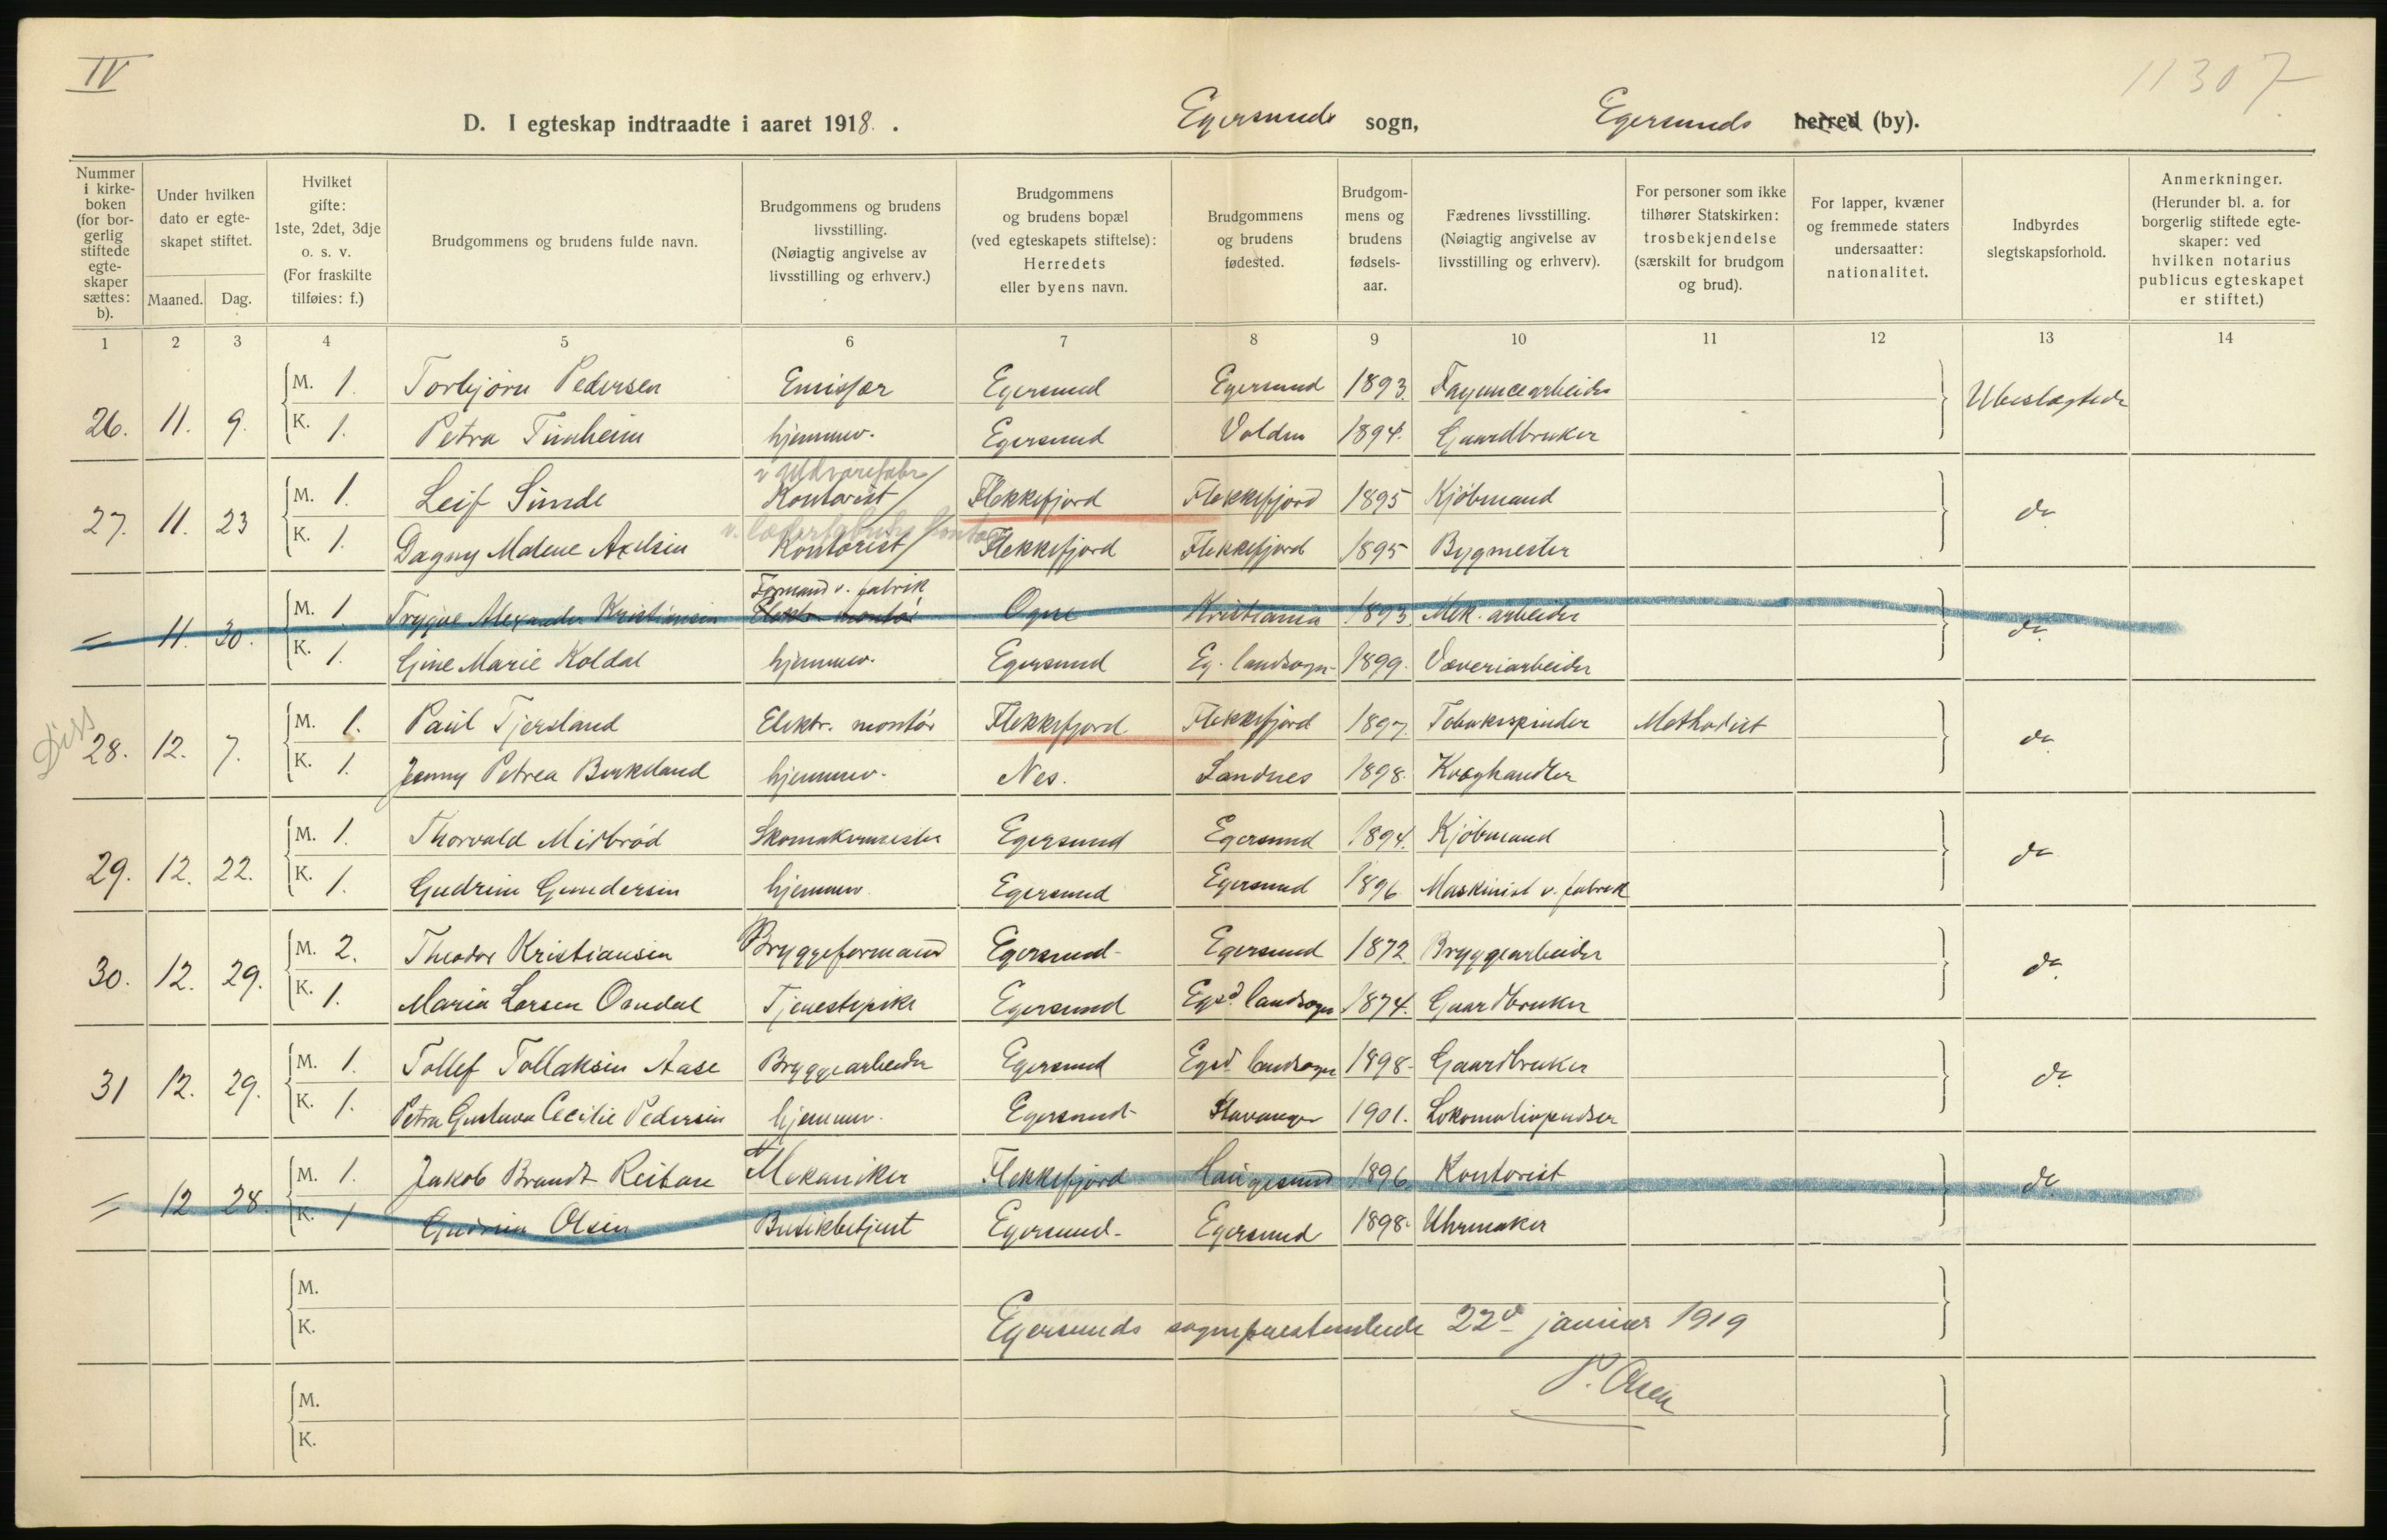 IV
11307
D. I egteskap indtraadte i aaret 1918. Egersunds sogn, Egersunds herred (by).
Nummer i kirkeboken (for borgerlig stiftede egteskaper sættes: b).
Under hvilken dato er egteskapet stiftet.
Maaned. Dag.
Hvilket gifte: 1ste, 2det, 3dje o. s. v. (For fraskilte tilføies: f.)
Brudgommens og brudens fulde navn.
Brudgommens og brudens livsstilling. (Nøiagtig angivelse av livsstilling og erhverv.)
Brudgommens og brudens bopæl (ved egteskapets stiftelse): Herredets eller byens navn.
Brudgommens og brudens fødested.
Brudgommens og brudens fødselsaar.
Fædrenes livsstilling. (Nøiagtig angivelse av livsstilling og erhverv).
For personer som ikke tilhører Statskirken: trosbekjendelse (særskilt for brudgom og brud).
For lapper, kvæner og fremmede staters undersaatter: nationalitet.
Indbyrdes slegtskapsforhold.
Anmerkninger. (Herunder bl. a. for borgerlig stiftede egteskaper: ved hvilken notarius publicus egteskapet er stiftet.)
1 2 3 4 5 6 7 8 9 10 11 12 13 14
M. 1. Torbjørn Pedersen Emisær Egersund Egersund 1893. Fayancearbeider Ubeslægtede
26. 11. 9. K. 1. Petra Tunheim hjemmev. Egersund Volden 1894. Gaardbruker
v Uldvarefabr
M. 1. Leif Sunde Kontorist Flekkefjord Flekkefjord 1895 Kjøbmand
27. 11. 23 do
v. Læderfabriks kontor
K. 1. Dagny Malene Axelsen Kontorist Flekkefjord Flekkefjord 1895 Bygmester
Formand v. fabrik
M. 1. Trygve Alexander Kristiansen Elektr. montør Ogne Kristiania 1893 Mek. arbeider
= 11. 30. do
K. 1. Gine Marie Koldal hjemmev. Egersund Eg. landsogn 1899. Væveriarbeider
Diss
M. 1. Paul Tjersland Elektr. montør Flekkefjord Flekkefjord 1897. Tobakspinder Methodist
28. 12. 7. do
K. 1. Jenny Petrea Birkeland hjemmev. Nes. Sandnes 1898. Kvæghandler
M. 1. Thorvald Misbrød Skomakermester Egersund Egersund 1894. Kjøbmand
29. 12. 22. do
K. 1. Gudrun Gundersen hjemmev. Egersund Egersund 1896. Maskinist v. fabrik
M. 2. Theodor Kristiansen Bryggeformand Egersund Egersund 1872. Bryggearbeider
30. 12. 29. do
K. 1. Maria Larsen Oandal Tjenestepike Egersund Egsd. landsogn 1874. Gaardbruker
M. 1. Tollef Tollaksen Aase Bryggearbeider Egersund Egsd. landsogn 1898. Gaardbruker
31 12. 29. do
K. 1. Petra Gustava Cecilie Pedersen hjemmev. Egersund Stavanger 1901. Lokomotivpudser
M. 1. Jakob Brandt Reitan Mekaniker Flekkefjord Haugesund 1896. Kontorist
= 12 28. do
K. 1 Gudrun Olsen Butikbetjent Egersund Egersund 1898. Uhrmaker
M.
K.
Egersunds sogneprestembede 22d januar 1919
P. Olsen
M.
K.